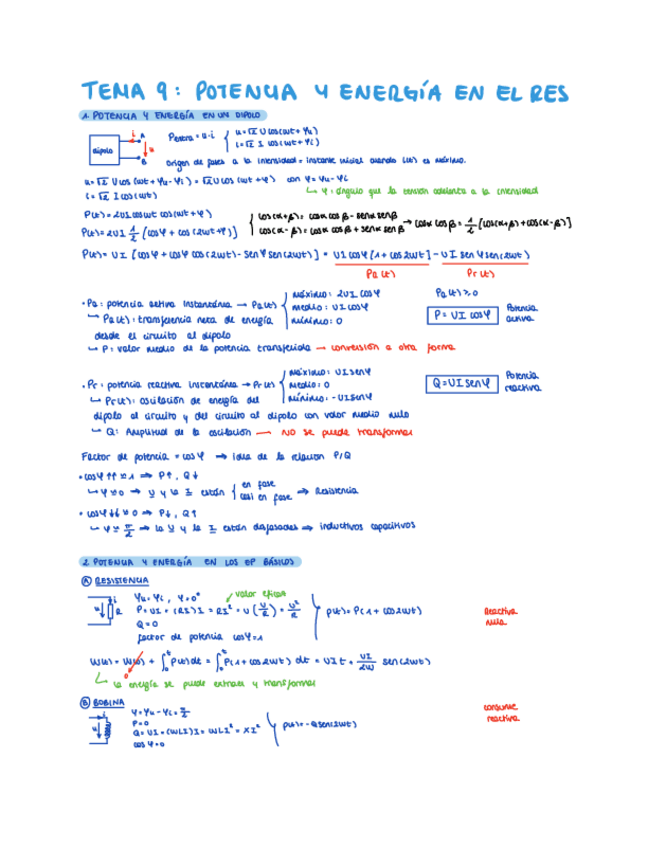 TEMA 9: POTENCIA Y ENERGÍA EN EL RES
1. POTENCIA Y ENERGÍA EN UN DIPOLO
dipolo
i
A
u
B
Pentra = u·i { u=√2 U cos(ωt+φu)
i=√2 I cos(ωt+φi)
origen de fases a la intensidad = instante inicial cuando i(t) es máximo.
u=√2 U cos(ωt+φu-φi) = √2 U cos(ωt+φ) con φ=φu-φi
↳ φ: ángulo que la tensión adelanta a la intensidad
i=√2 I cos(ωt)
P(t)=2UI cosωt cos(ωt+φ)
{ cos(α+β)= cosα cosβ - senα senβ
cos(α-β)= cosα cosβ + senα senβ → cosα cosβ = 1/2 [cos(α+β)+cos(α-β)]
P(t)=2UI 1/2 [cosφ + cos(2ωt+φ)]
P(t)= UI [cosφ + cosφ cos(2ωt) - senφ sen(2ωt)] = UI cosφ [1+cos2ωt] - UI senφ sen(2ωt)
Pa(t) Pr(t)
• Pa: potencia activa instantánea → Pa(t) { máximo: 2UI cosφ
medio: UI cosφ
mínimo: 0
Pa(t) ≥ 0
P= UI cosφ Potencia activa
↳ Pa(t): transferencia neta de energía
desde el circuito al dipolo
↳ P: valor medio de la potencia transferida → conversión a otra forma
• Pr: potencia reactiva instantánea → Pr(t) { máximo: UI senφ
medio: 0
mínimo: -UI senφ
Q=UI senφ Potencia reactiva
↳ Pr(t): oscilación de energía del
dipolo al circuito y del circuito al dipolo con valor medio nulo
↳ Q: Amplitud de la oscilación → NO se puede transformar
Factor de potencia = cosφ → idea de la relación P/Q
• cosφ↑↑ ≈ 1 ⇒ P↑, Q↓
↳ φ≈0 → U y la I están { en fase
casi en fase ⇒ Resistencia
• cosφ↓↓ ≈ 0 ⇒ P↓, Q↑
↳ φ≈ π/2 ⇒ la U y la I están desfasados ⇒ inductivos capacitivos
2. POTENCIA Y ENERGÍA EN LOS EP BÁSICOS
A RESISTENCIA
i
u R
φu=φi, φ=0°
valor eficaz
P=UI = (RI)I = RI² = U(U/R) = U²/R
Q=0
factor de potencia cosφ=1
p(t)= P(1+cos2ωt)
Reactiva nula
W(t) = W(0) + ∫₀ᵗ P(t)dt = ∫₀ᵗ P(1+cos2ωt) dt = UIt + UI/2ω sen(2ωt)
0
↳ la energía se puede extraer y transformar
B BOBINA
i
u
φ=φu-φi= π/2
P=0
Q=UI=(ωLI)I= ωLI² = XI²
cosφ=0
p(t)=-Qsen(2ωt)
consume reactiva